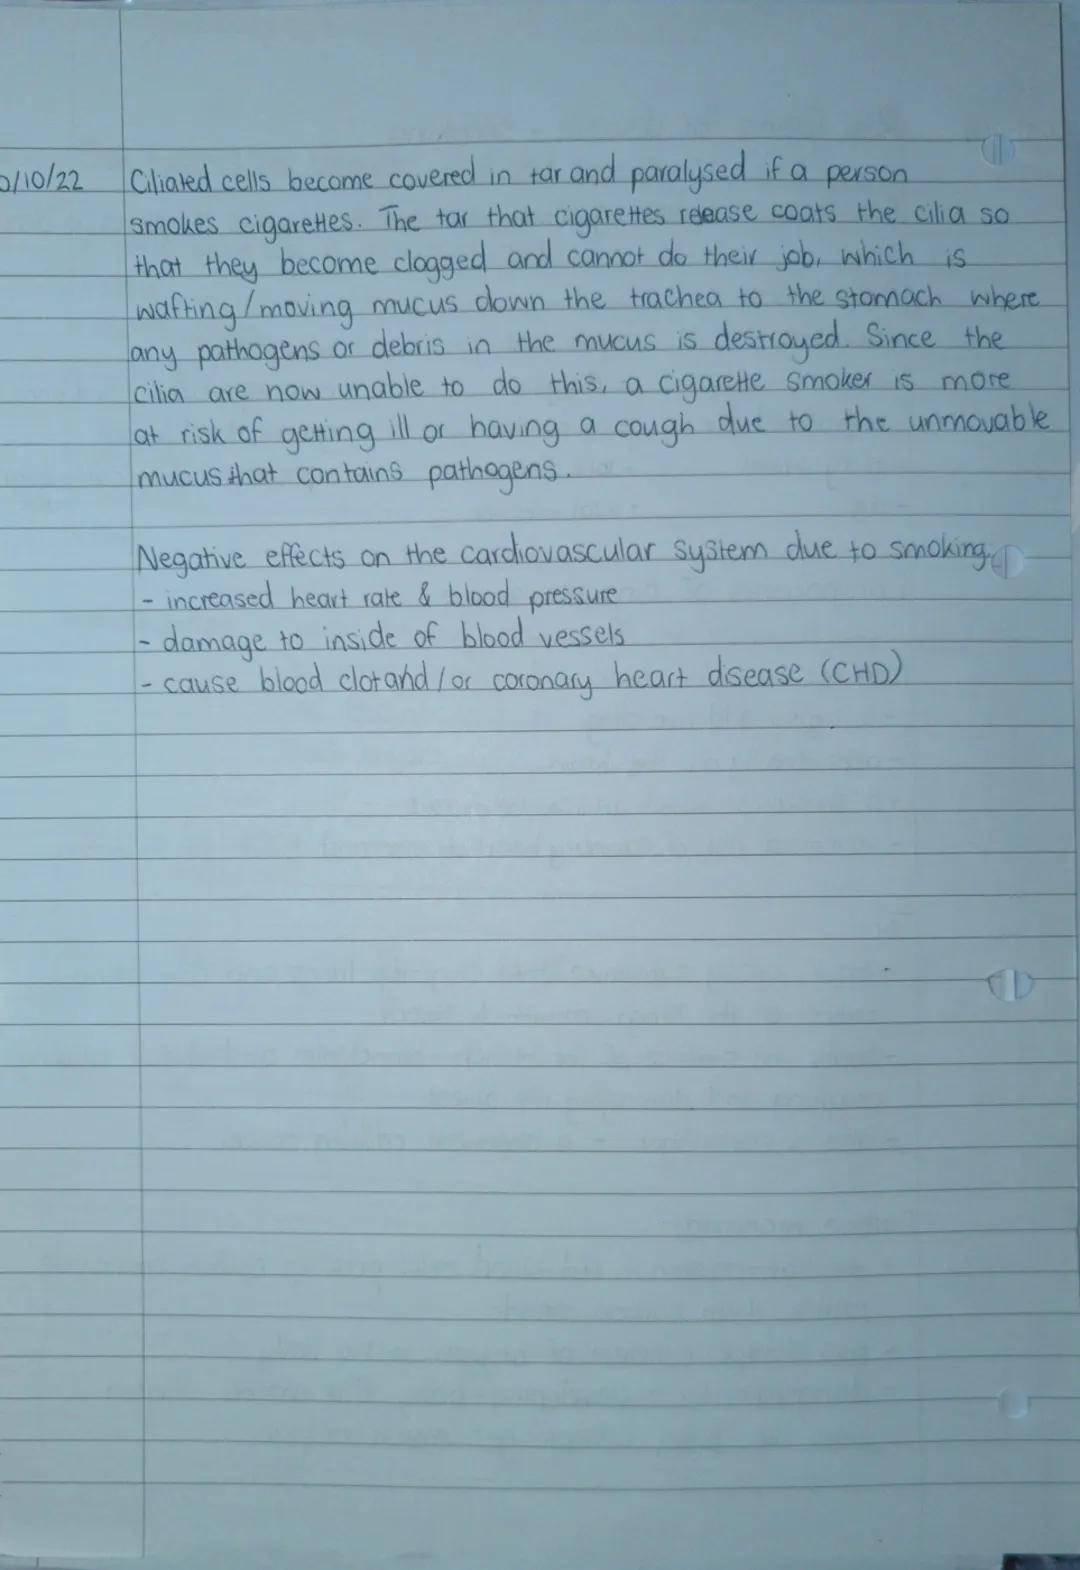 0/10/22 Ciliated cells become covered in tar and paralysed if a person
smokes cigarettes. The tar that cigarettes release coats the cilia so
that they become clogged and cannot do their job, which is
wafting/moving mucus down the trachea to the stomach where
any pathogens or debris in the mucus is destroyed. Since the
cilia are now unable to do this, a cigarette smoker is more
at risk of getting ill or having a cough due to the unmovable
mucus that contains pathogens.
Negative effects on the cardiovascular system due to smoking.
- increased heart rate & blood pressure
- damage to inside of blood vessels
- cause blood clot and/or coronary heart disease (CHD)